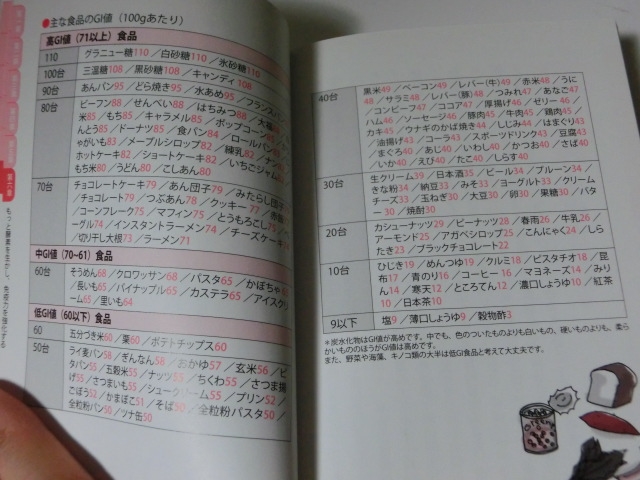 ●主な食品のGI値（100gあたり）
高GI値（71以上）食品
110 グラニュー糖110／白砂糖110／氷砂糖110
100台 三温糖108／黒砂糖108／キャンディ108
90台 あんパン95／どら焼き95／水あめ95／フランスパ
80台 ビーフン88／せんべい88／はちみつ88／大福
米85／もち85／キャラメル85／ポップコーン
んとう85／ドーナツ85／食パン84／ロールパン
ゃがいも83／メープルシロップ82／練乳82／ナン
ホットケーキ82／ショートケーキ82／いちごジャム
もち米80／うどん80／こしあん80
70台 チョコレートケーキ79／あん団子79／みたらし団子
／チョコレート79／つぶあん78／クッキー77／赤飯
／コーンフレーク75／マフィン75／とうもろこし75
ーグル74／インスタントラーメン74／チーズケーキ
／切り干し大根73／ラーメン71
中GI値（70〜61）食品
60台 そうめん68／クロワッサン68／パスタ65／かぼちゃ
／長いも65／パイナップル65／カステラ65／アイスクリ
65／里いも64
低GI値（60以下）食品
60 五分づき米60／栗60／ポテトチップス60
50台 ライ麦パン58／ぎんなん58／おかゆ57／玄米56／ピ
タパン55／五穀米55／ナッツ55／ちくわ55／さつま揚
げ55／さつまいも55／シュークリーム55／プリン52／
ごぼう52／かまぼこ51／そば50／全粒粉パスタ50／
全粒粉パン50／ツナ缶50
第六章
もっと酵素を生かし、免疫力を強化する
40台 黒米49／ベーコン49／レバー（牛）49／赤米48／うに
48／サラミ48／レバー（豚）48／つみれ47／あなご47
／コンビーフ47／ココア47／厚揚げ46／ゼリー46／
ハム46／ソーセージ46／豚肉45／牛肉45／鶏肉45／
カキ45／ウナギのかば焼き44／しじみ44／はまぐり43
／油揚げ43／コーラ43／スポーツドリンク43／豆腐42
／まぐろ40／あじ40／いわし40／かつお40／さば40
／いか40／えび40／たこ40／しらす40
30台 生クリーム39／日本酒35／ビール34／プルーン34／
きな粉34／納豆33／みそ33／ヨーグルト33／クリーム
チーズ33／玉ねぎ30／大豆30／卵30／果糖30／バタ
ー30／焼酎30
20台 カシューナッツ29／ピーナッツ28／春雨26／牛乳26／
アーモンド25／アガペシロップ25／こんにゃく24／しら
たき23／ブラックチョコレート22
10台 ひじき19／めんつゆ19／クルミ18／ピスタチオ18／昆
布17／青のり16／コーヒー16／マヨネーズ14／みりん
14／寒天12／ところてん12／濃口しょうゆ10／紅茶
10／日本茶10
9以下 塩9／薄口しょうゆ9／穀物酢3
＊炭水化物はGI値が高めです。中でも、色のついたものよりも白いもの、硬いものよりも、柔ら
かいもののほうがGI値は高めです。
また、野菜や海藻、キノコ類の大半は低GI食品と考えて大丈夫です。